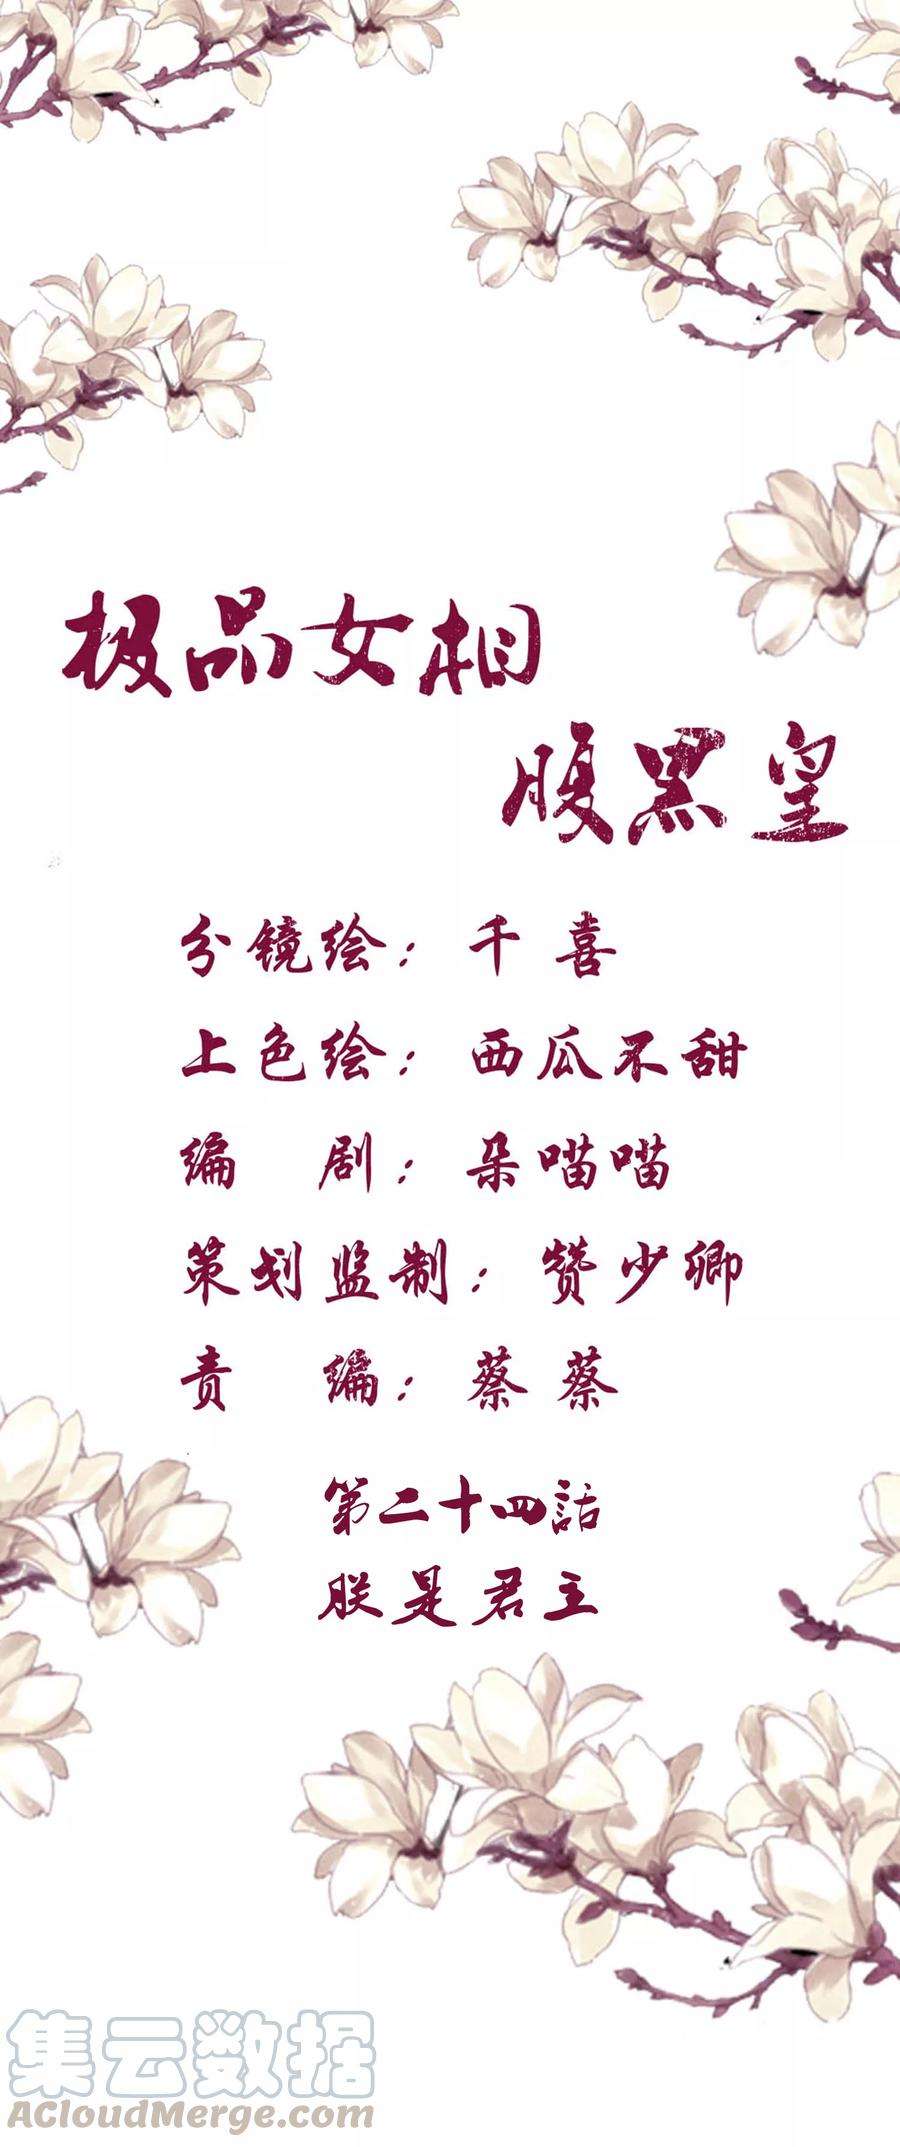 极品女相
腹黑皇
分镜绘：千喜
上色绘：西瓜不甜
编剧：朵喵喵
策划监制：赞少卿
责编：蔡蔡
第二十四話
朕是君主
集云数据
ACloudMerge.com